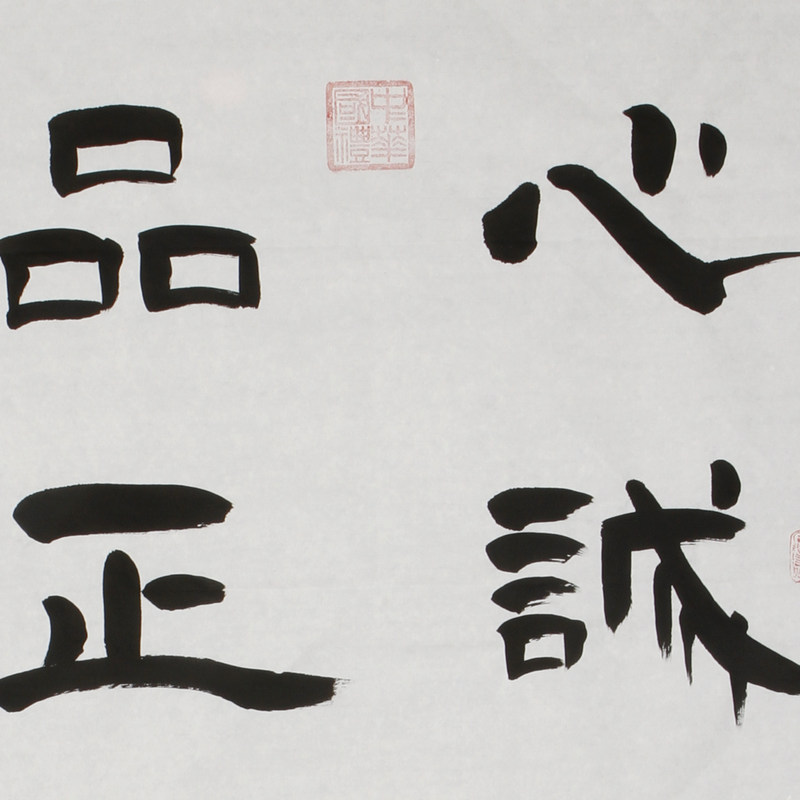 心誠
中華
國禮
品正